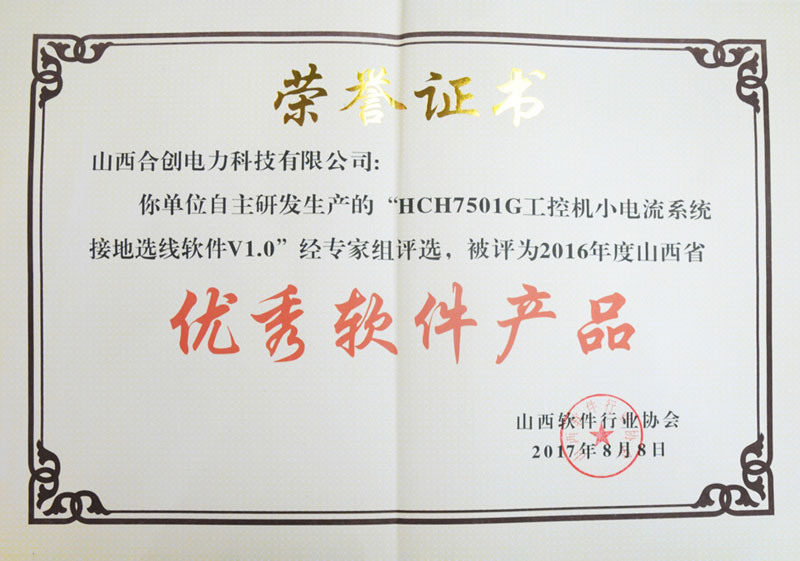 荣誉证书
山西合创电力科技有限公司:
你单位自主研发生产的“HCH7501G工控机小电流系统
接地选线软件V1.0”经专家组评选，被评为2016年度山西省
优秀软件产品
山西软件行业协会
2017年8月8日
山西软件行业协会